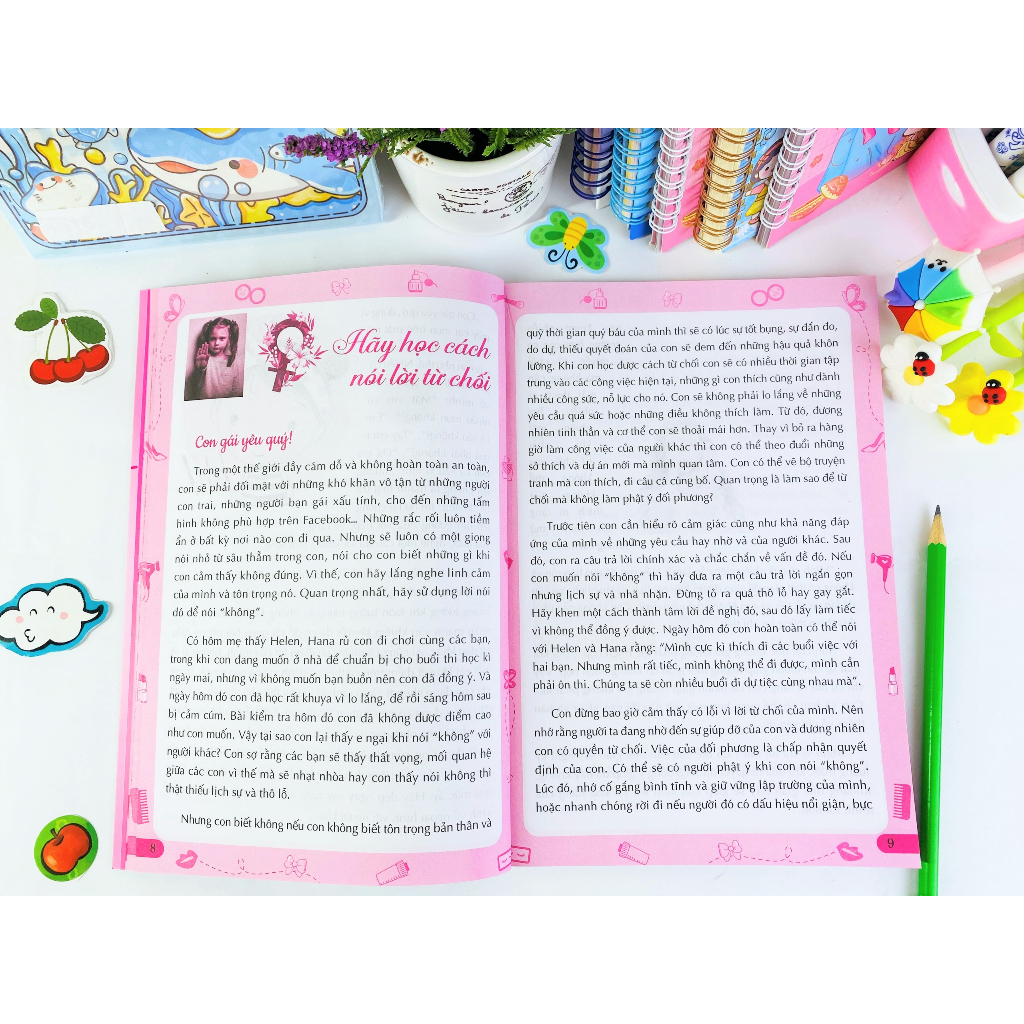 CARTE POSTALE
Hãy học cách
nói lời từ chối
Con gái yêu quý!
Trong một thế giới đầy cám dỗ và không hoàn toàn an toàn,
con sẽ phải đối mặt với những khó khăn vô tận từ những người
con trai, những người bạn gái xấu tính, cho đến những tấm
hình không phù hợp trên Facebook... Những rắc rối luôn tiềm
ẩn ở bất kỳ nơi nào con đi qua. Nhưng sẽ luôn có một giọng
nói nhỏ từ sâu thẳm trong con, nói cho con biết những gì khi
con cảm thấy không đúng. Vì thế, con hãy lắng nghe linh cảm
của mình và tôn trọng nó. Quan trọng nhất, hãy sử dụng lời nói
đó để nói "không".
Có hôm mẹ thấy Helen, Hana rủ con đi chơi cùng các bạn,
trong khi con đang muốn ở nhà để chuẩn bị cho buổi thi học kì
ngày mai, nhưng vì không muốn bạn buồn nên con đã đồng ý. Và
ngày hôm đó con đã học rất khuya vì lo lắng, để rồi sáng hôm sau
bị cảm cúm. Bài kiểm tra hôm đó con đã không được điểm cao
như con muốn. Vậy tại sao con lại thấy e ngại khi nói "không" với
người khác? Con sợ rằng các bạn sẽ thấy thất vọng, mối quan hệ
giữa các con vì thế mà sẽ nhạt nhòa hay con thấy nói không thì
thật thiếu lịch sự và thô lỗ.
Nhưng con biết không nếu con không biết tôn trọng bản thân và
8
quỹ thời gian quý báu của mình thì sẽ có lúc sự tốt bụng, sự đắn đo,
do dự, thiếu quyết đoán của con sẽ đem đến những hậu quả khôn
lường. Khi con học được cách từ chối con sẽ có nhiều thời gian tập
trung vào các công việc hiện tại, những gì con thích cũng như dành
nhiều công sức, nỗ lực cho nó. Con sẽ không phải lo lắng về những
yêu cầu quá sức hoặc những điều không thích làm. Từ đó, đương
nhiên tinh thần và cơ thể con sẽ thoải mái hơn. Thay vì bỏ ra hàng
giờ làm công việc của người khác thì con có thể theo đuổi những
sở thích và dự án mới mà mình quan tâm. Con có thể vẽ bộ truyện
tranh mà con thích, đi câu cá cùng bố. Quan trọng là làm sao để từ
chối mà không làm phật ý đối phương?
Trước tiên con cần hiểu rõ cảm giác cũng như khả năng đáp
ứng của mình về những yêu cầu hay nhờ vả của người khác. Sau
đó, con ra câu trả lời chính xác và chắc chắn về vấn đề đó. Nếu
con muốn nói "không" thì hãy đưa ra một câu trả lời ngắn gọn
nhưng lịch sự và nhã nhặn. Đừng tỏ ra quá thô lỗ hay gay gắt.
Hãy khen một cách thành tâm lời đề nghị đó, sau đó lấy làm tiếc
vì không thể đồng ý được. Ngày hôm đó con hoàn toàn có thể nói
với Helen và Hana rằng: "Mình cực kì thích đi các buổi việc với
hai bạn. Nhưng mình rất tiếc, mình không thể đi được, mình cần
phải ôn thi. Chúng ta sẽ còn nhiều buổi đi dự tiệc cùng nhau mà".
Con đừng bao giờ cảm thấy có lỗi vì lời từ chối của mình. Nên
nhớ rằng người ta đang nhờ đến sự giúp đỡ của con và đương nhiên
con có quyền từ chối. Việc của đối phương là chấp nhận quyết
định của con. Có thể sẽ có người phật ý khi con nói "không".
Lúc đó, nhớ cố gắng bình tĩnh và giữ vững lập trường của mình,
hoặc nhanh chóng rời đi nếu người đó có dấu hiệu nổi giận, bực
9